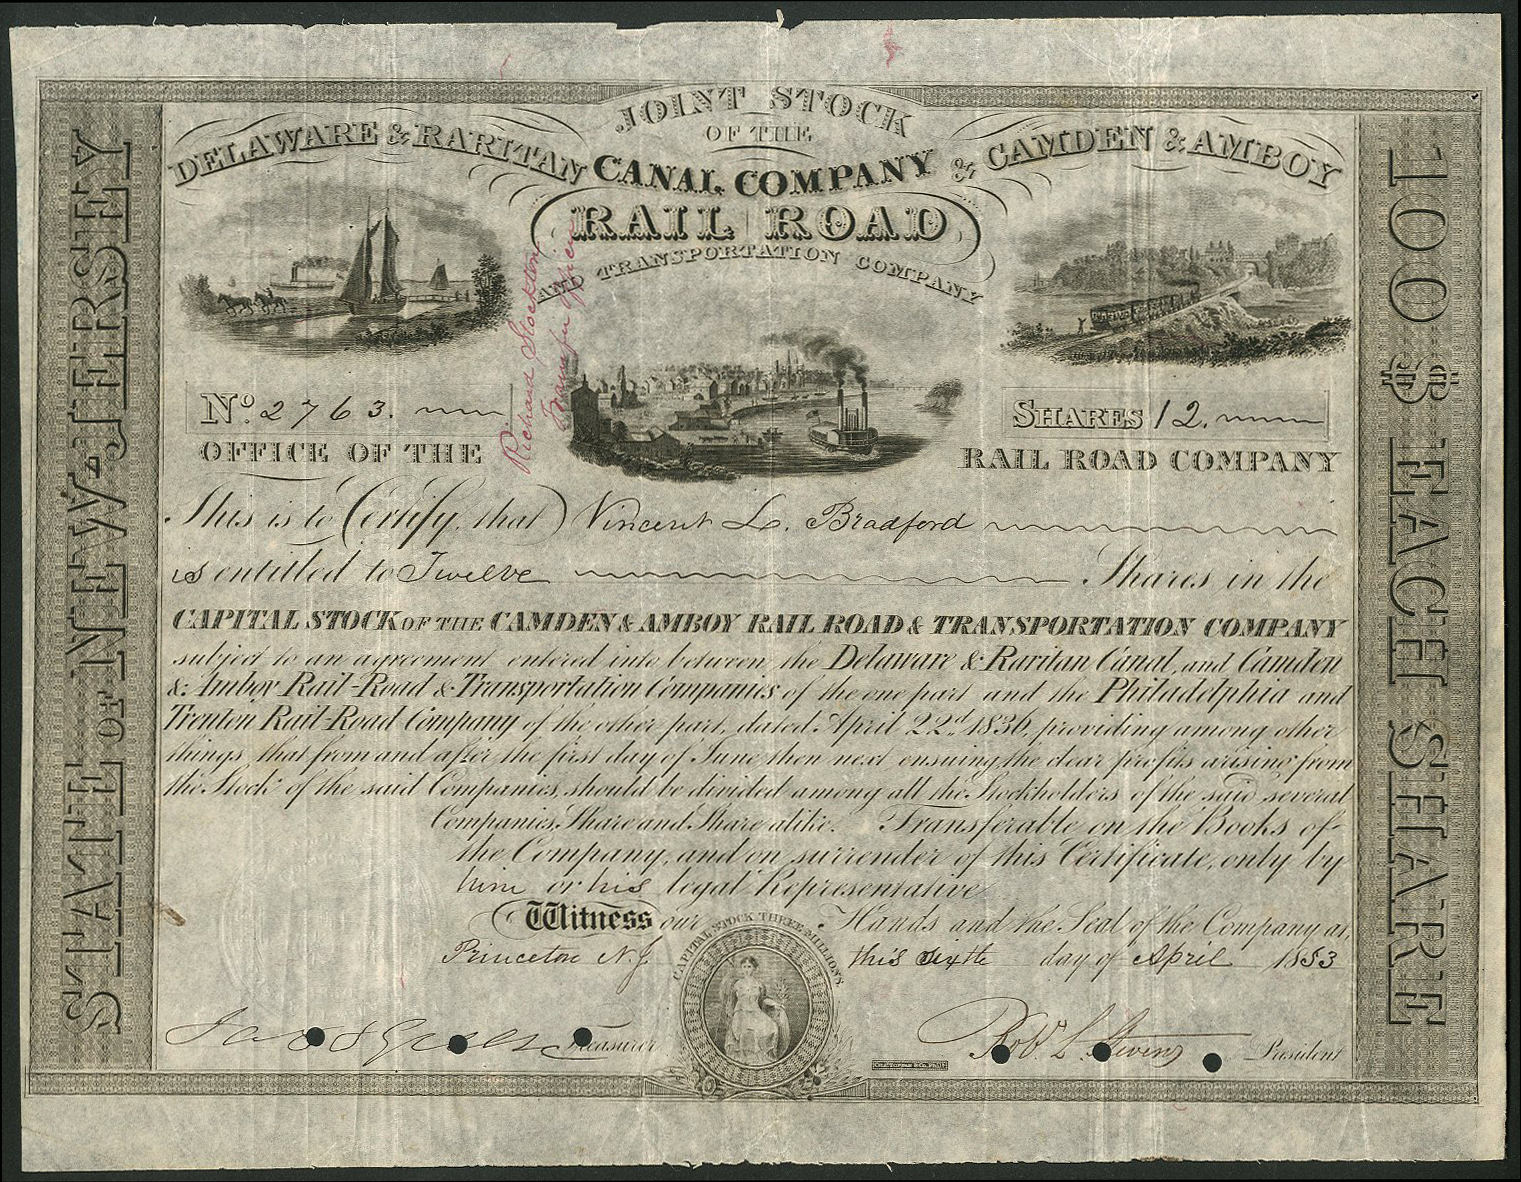 JOINT STOCK
OF THE
DELAWARE & RARITAN CANAL COMPANY & CAMDEN & AMBOY
RAIL ROAD
AND TRANSPORTATION COMPANY
STATE OF NEW-JERSEY
100 $ EACH SHARE
Richard Stockton
Transfer Officer
No. 2763.
SHARES 12.
OFFICE OF THE
RAIL ROAD COMPANY
This is to Certify, that Vincent L. Bradford
is entitled to Twelve Shares in the
CAPITAL STOCK OF THE CAMDEN & AMBOY RAIL ROAD & TRANSPORTATION COMPANY
subject to an agreement entered into between the Delaware & Raritan Canal, and Camden
& Amboy Rail-Road & Transportation Companies of the one part and the Philadelphia and
Trenton Rail-Road Company of the other part, dated April 22d. 1836, providing among other
things, that from and after the first day of June then next ensuing, the clear profits arising from
the Stock of the said Companies, should be divided among all the Stockholders of the said several
Companies, Share and Share alike. Transferable on the Books of
the Company, and on surrender of this Certificate, only by
him or his legal Representative
Witness our Hands and the Seal of the Company at,
Princeton N.J. this sixth day of April 1853
CAPITAL STOCK THREE MILLIONS
Treasurer
Rob. L. Stevens President